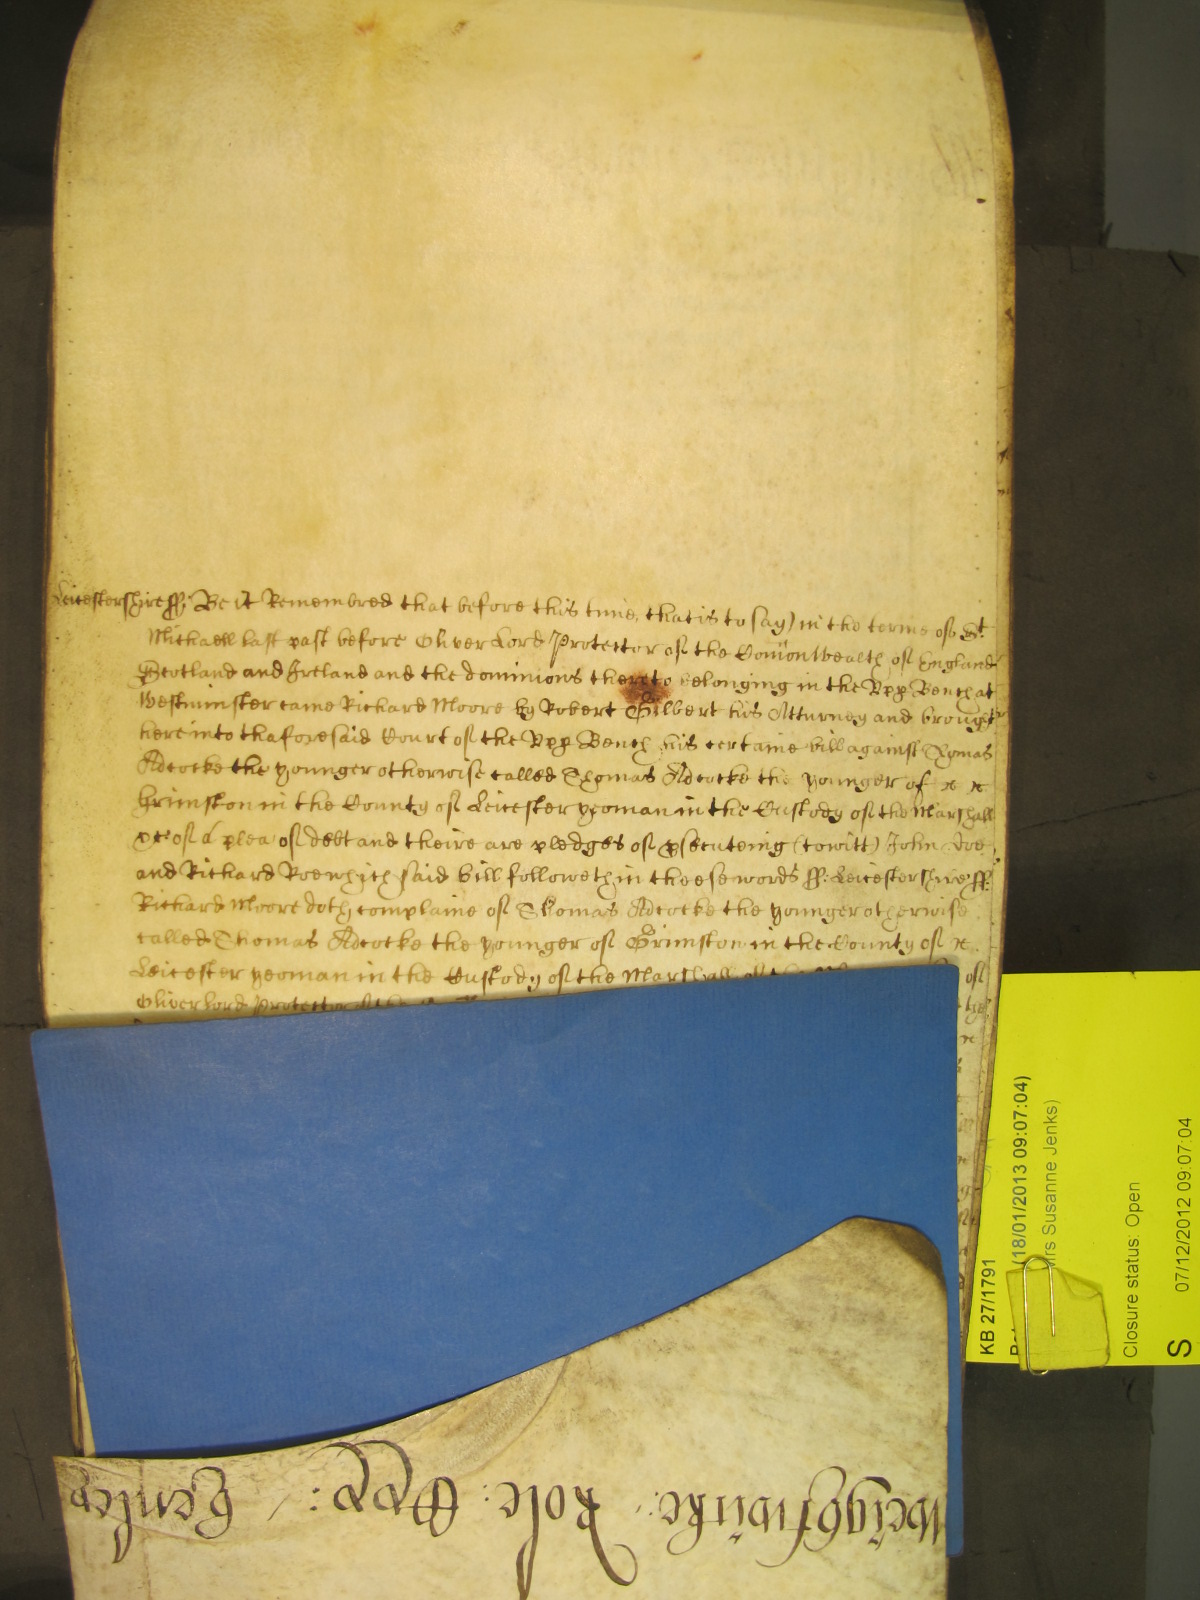 Leicestershire ss: Be it Remembred that before this time, that is to say) in the terme of St
Michaell last past before Oliver Lord Protector of the Comonwealth of England
Scotland and Ireland and the dominions thereto belonging in the Upp Bench at
Westminster came Richard Moore by Robert Gilbert his Atturney and brought
here into thaforesaid Court of the Upp Bench his certaine bill against Thomas
Adcocke the younger otherwise called Thomas Adcocke the younger of
Grimston in the County of Leicester yeoman in the Custody of the Marshall
&c of a plea of debt and theire are pledges of psecuteing (towitt) John Doe
and Richard Roe which said bill followeth in theese words ss: Leicestershire ss:
Richard Moore doth complaine of Thomas Adcocke the younger otherwise
called Thomas Adcocke the younger of Grimston in the County of
Leicester yeoman in the Custody of the Marshall of
Oliver Lord Protector
KB 27/1791
(18/01/2013 09:07:04)
Mrs Susanne Jenks)
Closure status: Open
S
07/12/2012 09:07:04
Role: Upp: